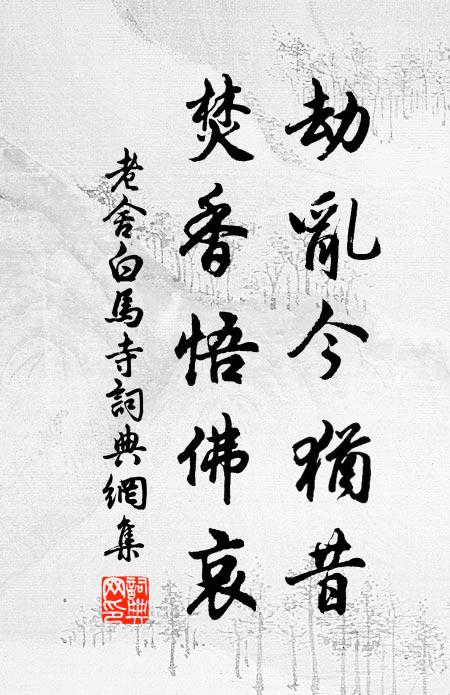 劫亂今猶昔
焚香悟佛哀
老舍白馬寺詞典網集